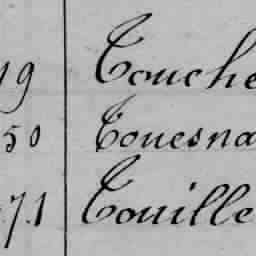 19 Touche
50 Touesna
71 Touille